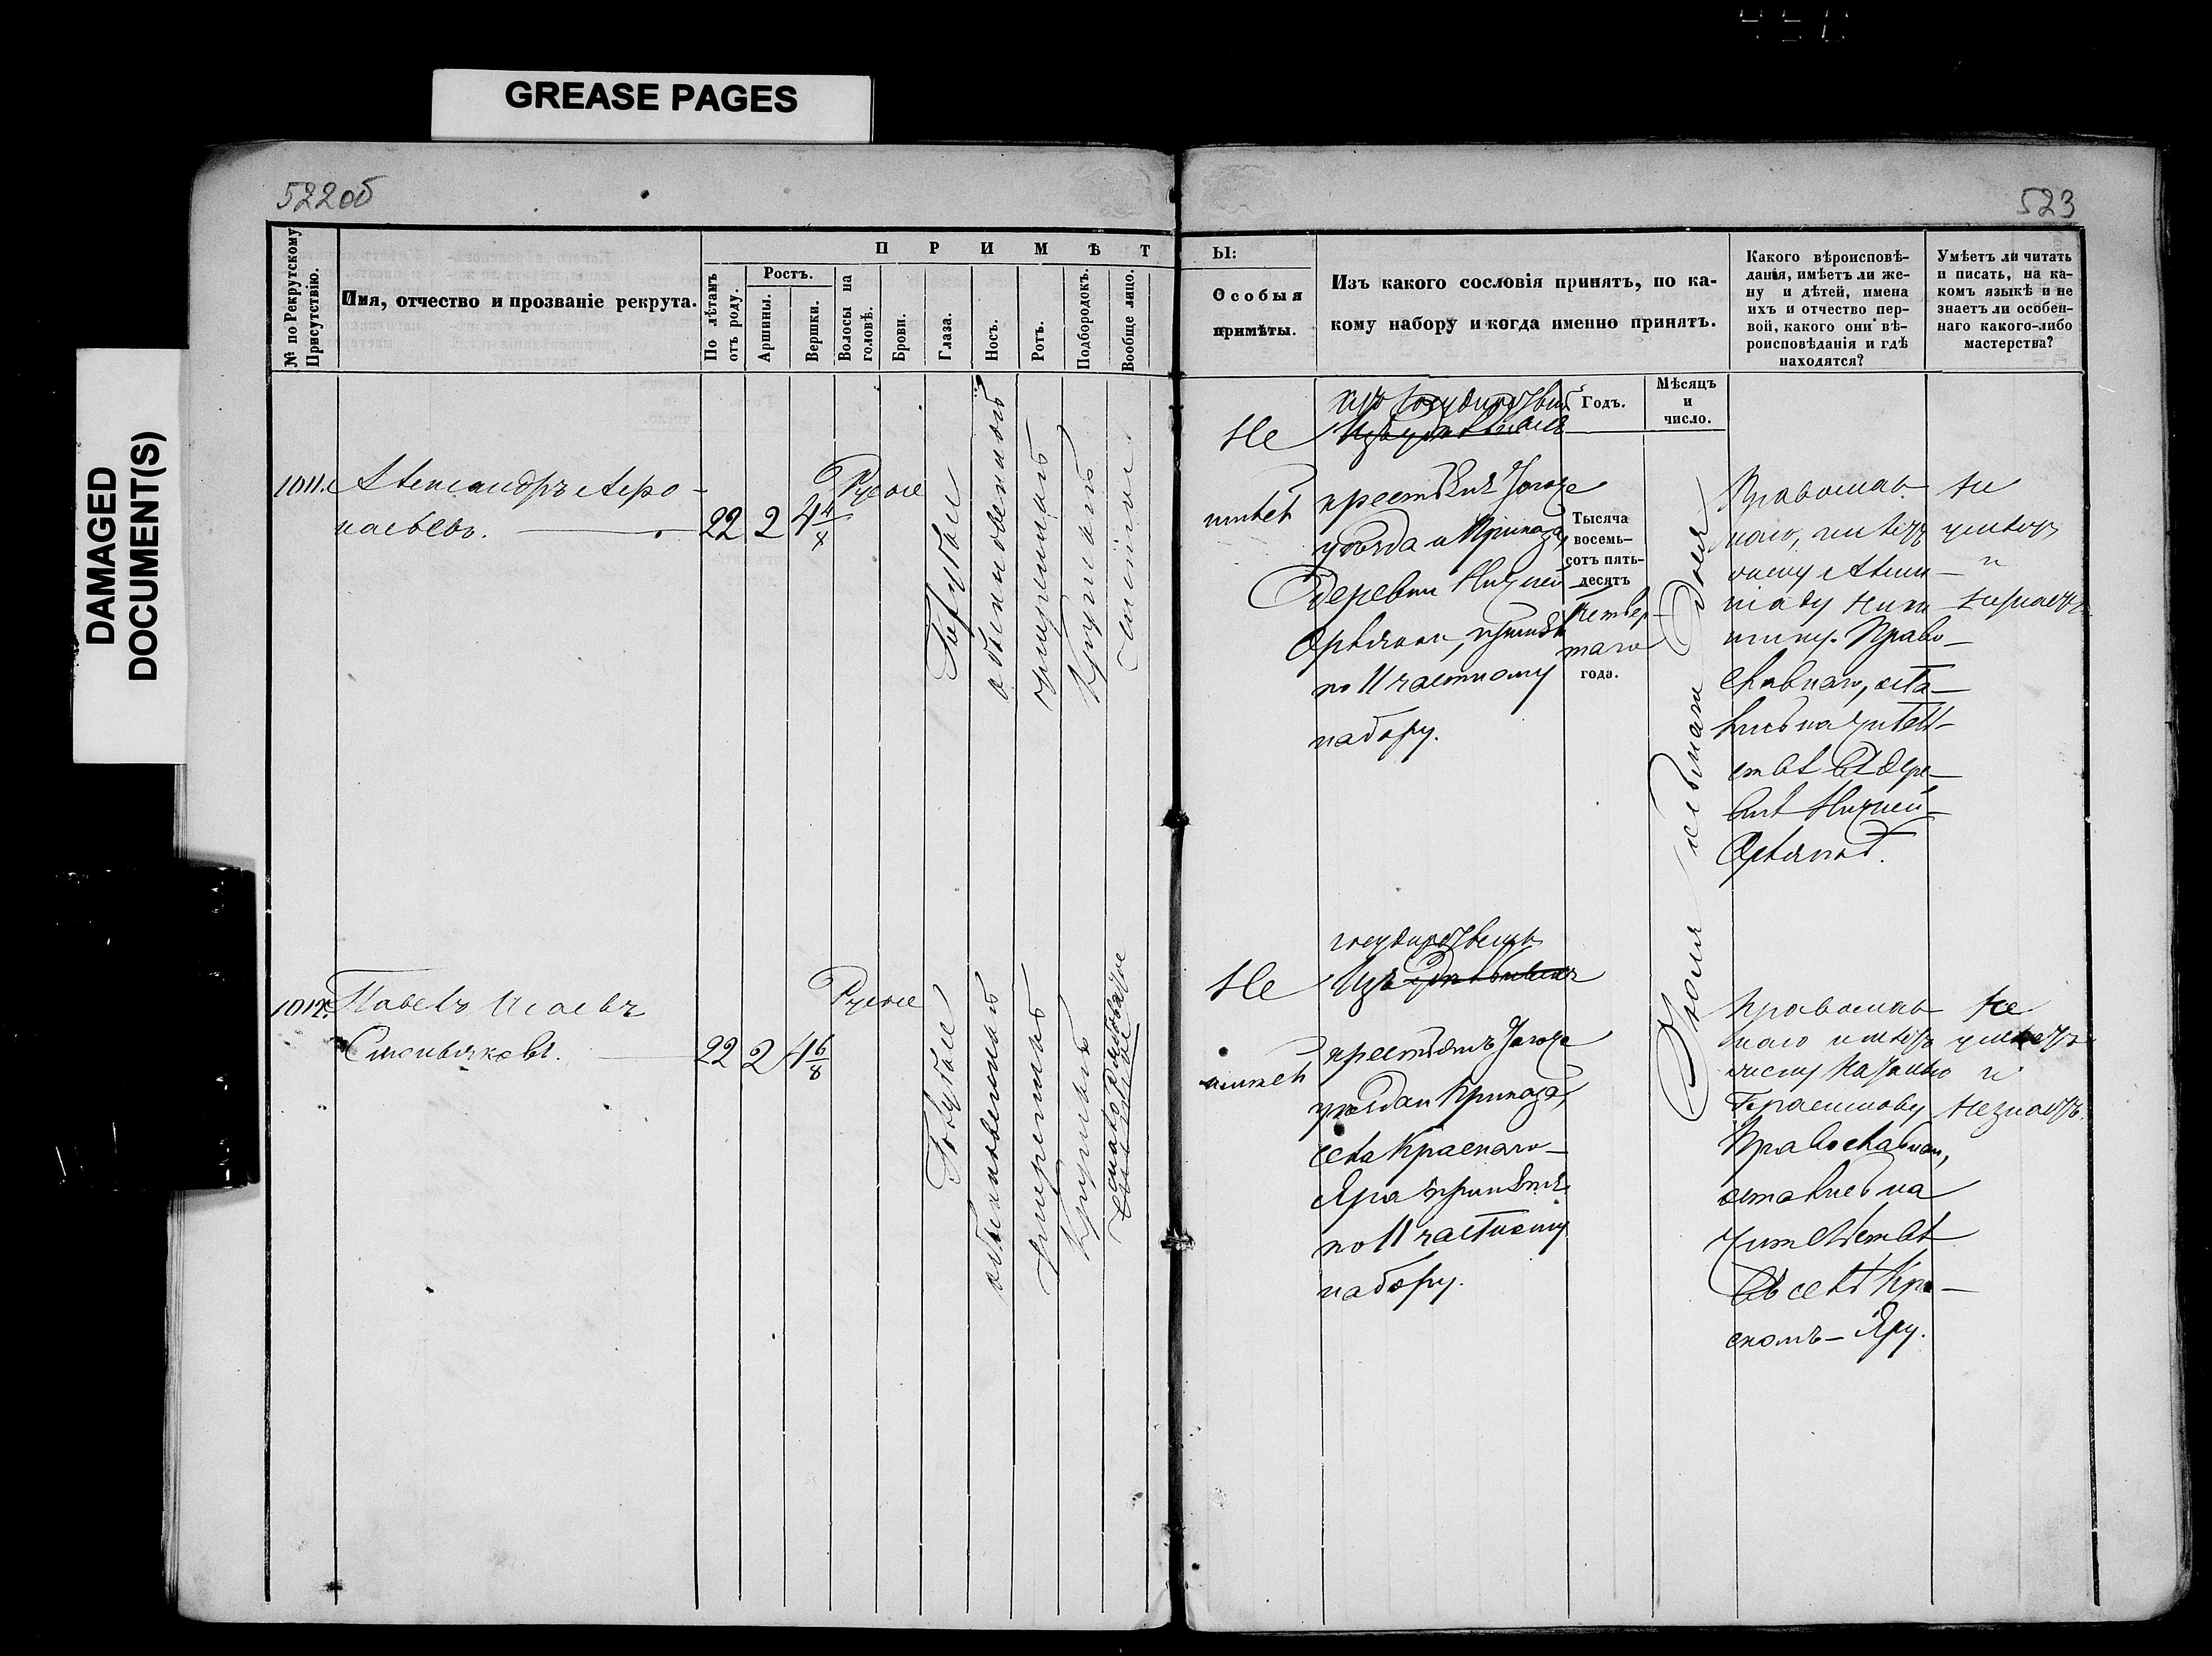 GREASE PAGES
DAMAGED
DOCUMENT(S)
522об
523
№ по Рекрутскому Присутствію.
Имя, отчество и прозваніе рекрута.
П Р И М Ѣ Т
Ы:
По лѣтамъ отъ роду.
Ростъ.
Аршины.
Вершки.
Волосы на головѣ.
Брови.
Глаза.
Носъ.
Ротъ.
Подбородокъ.
Вообще лицо.
Особыя
примѣты.
Изъ какого сословія принятъ, по ка-
кому набору и когда именно принятъ.
Годъ.
Мѣсяцъ
и
число.
Какого вѣроисповѣ-
данія, имѣетъ ли же-
ну и дѣтей, имена
ихъ и отчество пер-
вой, какого они вѣ-
роисповѣданія и гдѣ
находятся?
Умѣетъ ли читать
и писать, на ка-
комъ языкѣ и не
знаетъ ли особен-
наго какого-либо
мастерства?
1011.
Александръ Аѳо-
насьевъ.
22
2
4 4/8
Русые
Голубые
обыкновенный
умеренный
Круглый
чистое
Не
имѣетъ
крестьянъ
уѣзда и Приказа,
деревни Нижней
принятъ
по 11 частному
набору.
Тысяча
восемь-
сотъ пять-
десятъ
Четвер-
таго
года.
Іюля седьмаго дня
Православ-
наго, имѣетъ
жену
Право-
славнаго, оста-
лись на житель-
ствѣ въ дере-
внѣ Нижней
Не
умѣетъ
и
незнаетъ
1012.
Павелъ Исаевъ
22
2
4 6/8
Русые
Голубые
обыкновенный
умеренный
Круглый
Не
имѣетъ
государствен
Изъ
крестьянъ
уѣзда и Приказа,
села Краснаго-
Яра принятъ
по 11 частному
набору.
Православ-
наго имѣетъ
жену
Православнаго,
остались на
жительствѣ
въ селѣ Кра-
сномъ-Яру.
Не
умѣетъ
и
незнаетъ.